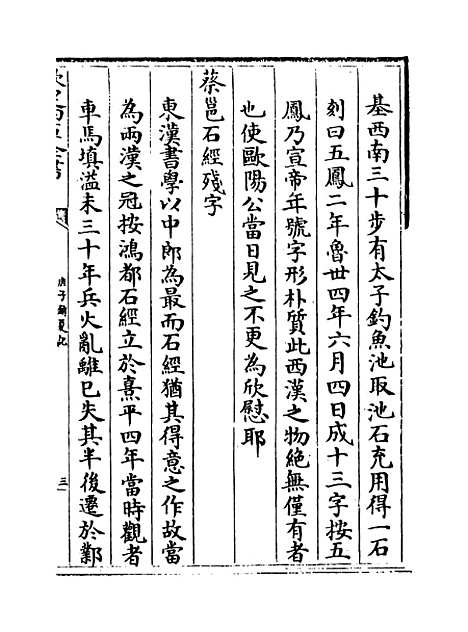 基西南三十步有太子釣魚池取池石充用得一石
刻曰五鳳二年魯丗四年六月四日成十三字按五
鳳乃宣帝年號字形朴質此西漢之物絶無僅有者
也使歐陽公當日見之不更為欣慰耶
蔡邕石經殘字
東漢書學以中郎為最而石經猶其得意之作故當
為兩漢之冠按鴻都石經立於熹平四年當時觀者
車馬填溢未三十年兵火亂離已失其半後遷於鄴
庚子銷夏記
三